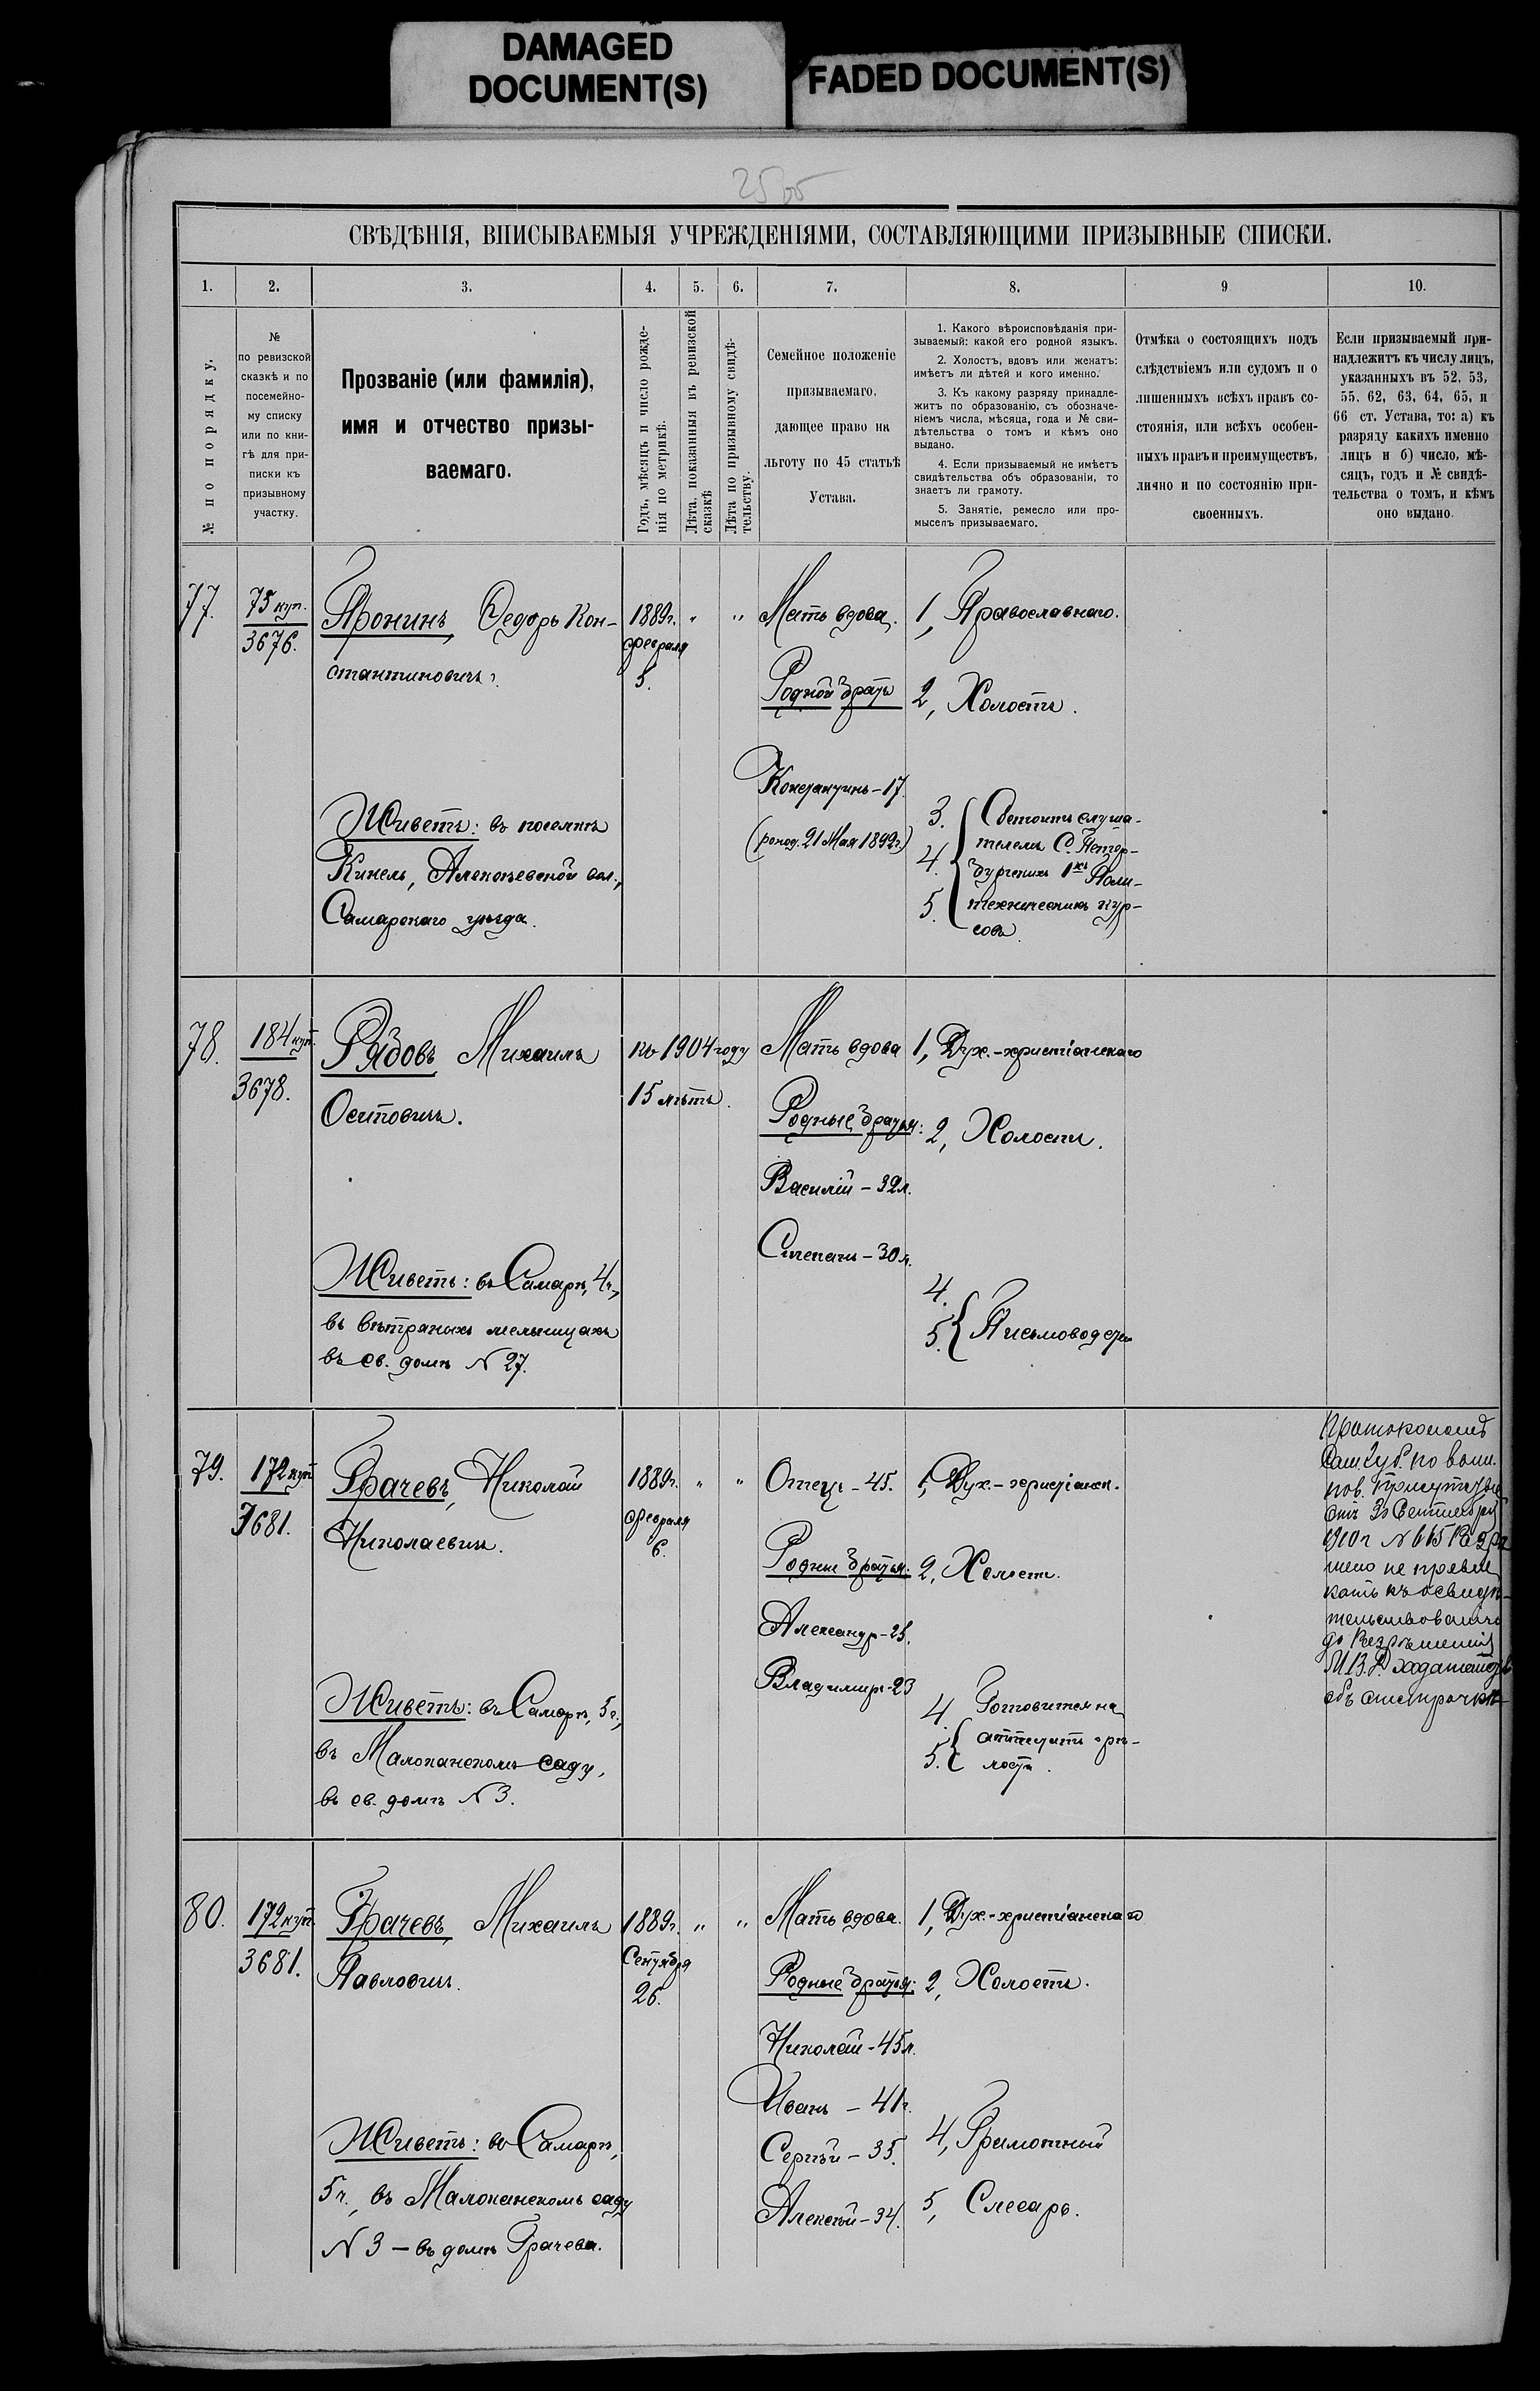 DAMAGED
DOCUMENT(S)
FADED DOCUMENT(S)
СВѢДѢНІЯ, ВПИСЫВАЕМЫЯ УЧРЕЖДЕНІЯМИ, СОСТАВЛЯЮЩИМИ ПРИЗЫВНЫЕ СПИСКИ.
1.
2.
3.
4.
5.
6.
7.
8.
9
10.
№ по порядку.
№
по ревизской
сказкѣ и по
посемейно-
му списку
или по кни-
гѣ для при-
писки къ
призывному
участку.
Прозваніе (или фамилія),
имя и отчество призы-
ваемаго.
Годъ, мѣсяцъ и число рожде-
нія по метрикѣ.
Лѣта, показанныя въ ревизской
сказкѣ
Лѣта по призывному свидѣ-
тельству.
Семейное положеніе
призываемаго,
дающее право на
льготу по 45 статьѣ
Устава.
1. Какого вѣроисповѣданія при-
зываемый: какой его родной языкъ.
2. Холостъ, вдовъ или женатъ:
имѣетъ ли дѣтей и кого именно.
3. Къ какому разряду принадле-
житъ по образованію, съ обозначе-
ніемъ числа, мѣсяца, года и № сви-
дѣтельства о томъ и кѣмъ оно
выдано.
4. Если призываемый не имѣетъ
свидѣтельства объ образованіи, то
знаетъ ли грамоту.
5. Занятіе, ремесло или про-
мыселъ призываемаго.
Отмѣка о состоящихъ подъ
слѣдствіемъ или судомъ и о
лишенныхъ всѣхъ правъ со-
стоянія, или всѣхъ особен-
ныхъ правъ и преимуществъ,
лично и по состоянію при-
своенныхъ.
Если призываемый при-
надлежитъ къ числу лицъ,
указанныхъ въ 52, 53,
55. 62, 63, 64, 65, и
66 ст. Устава, то: а) къ
разряду какихъ именно
лицъ и б) число, мѣ-
сяцъ, годъ и № свидѣ-
тельства о томъ, и кѣмъ
оно выдано.
77.
75 куп.
3676.
Пронинъ, Ѳедоръ Кон-
стантиновичъ.
Живетъ: въ поселкѣ
Кинель, Алексѣевской вол.,
Самарскаго уѣзда.
1889г.
февраля
5.
" "
Мать вдова.
Родной братъ
Константинъ - 17.
(рожд. 21 Мая 1892г)
1, Православнаго.
2, Холостъ.
3.
4.
5.
Состоитъ слуша-
телемъ С. Петер-
бургскихъ 1хъ Поли-
техническихъ кур-
совъ.
78.
184 куп.
3678.
Рядовъ, Михаилъ
Осиповичъ.
Живетъ: въ Самарѣ, 4ч.,
въ вѣтряныхъ мельницахъ
въ св. домѣ N 27.
къ 1904 году
15 лѣтъ.
Мать вдова
Родные братья:
Василій - 32л.
Степанъ - 30л.
1, Дух.-христіанскаго
2, Холостъ.
4.
5. Письмоводств
79.
172 куп
3681.
Грачевъ, Николай
Николаевичъ.
Живетъ: въ Самарѣ, 5ч.,
въ Молоканскомъ саду,
въ св. домѣ N 3.
1889г.
февраля
6.
" "
Отецъ - 45.
Родные братья:
Александр - 25.
Владимиръ - 23
1, Дух.-христіанск.
2, Холост.
4.
5.
Готовится на
аттестатъ зрѣ-
лости.
Протоколомъ
Сам Губ. по воин.
пов. Присутствія
отъ Сентября
1910 г N 665 Разрѣ
шено не привле
кать къ освидѣ-
тельствованію
до Разрѣшенія
М.В.Д. ходатайств
объ отсрочкѣ
80.
172 куп
3681.
Грачевъ, Михаилъ
Павловичъ.
Живетъ: въ Самарѣ,
5ч., въ Молоканскомъ саду
N 3 — въ домѣ Грачева.
1889г.
Сентября
26.
" "
Мать вдова.
Родные братья:
Николай - 45л.
Иванъ - 41г.
Сергѣй - 35.
Алексѣй - 34.
1, Дух.-христіанскаго
2, Холостъ.
4, Грамотный
5, Слесарь.